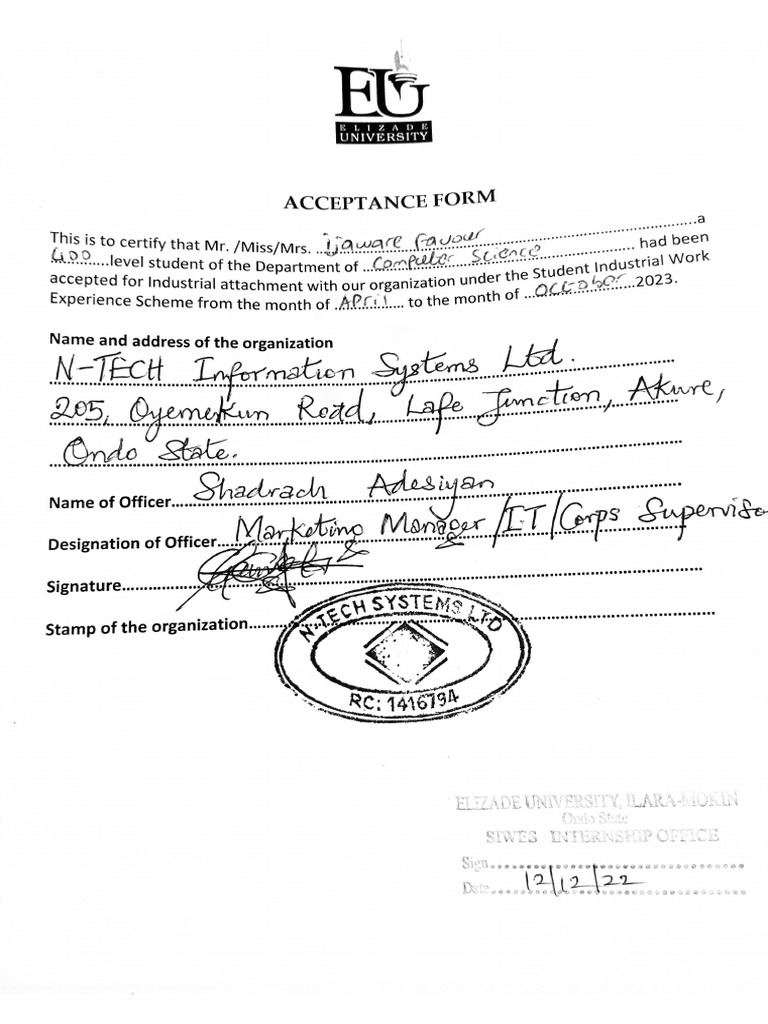 EU
ELIZADE
UNIVERSITY
ACCEPTANCE FORM
This is to certify that Mr. /Miss/Mrs. ...Ijaware Favour...a
400......level student of the Department of ...Computer Science... had been
accepted for Industrial attachment with our organization under the Student Industrial Work
Experience Scheme from the month of .April.... to the month of ...October...2023.
Name and address of the organization
N-TECH Information Systems Ltd.
205, Oyemekun Road, Lafe Junction, Akure,
Ondo State.
Name of Officer......Shadrach Adesiyan
Designation of Officer...Marketing Manager/IT/Corps Superviso
Signature......
Stamp of the organization......
N-TECH SYSTEMS LTD
RC: 1416794
ELIZADE UNIVERSITY, ILARA-MOKIN
Ondo State
SIWES INTERNSHIP OFFICE
Sign......
Date......12/12/22